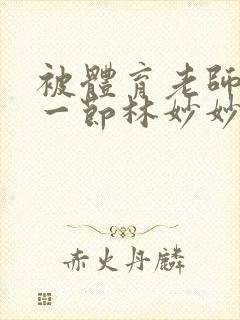 被體育老師
一節林妙妙
赤火丹麟